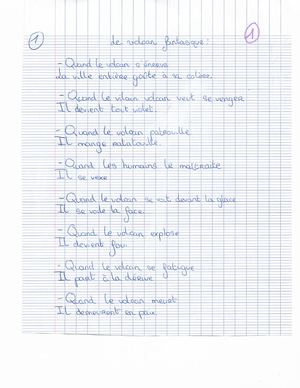 1
1
Le volcan fantasque :
- Quand le volcan s'énerve
La ville entière goûte à sa colère.
- Quand le vilain volcan veut se venger
Il devient tout violet.
- Quand le volcan patrouille
Il mange ratatouille.
- Quand les humains le maltraite
Il se vexe
- Quand le volcan se voit devant la glace
Il se voile la face.
- Quand le volcan explose
Il devient fou
- Quand le volcan se fatigue
Il part à la dérive
- Quand le volcan meurt
Il demeurent en paix